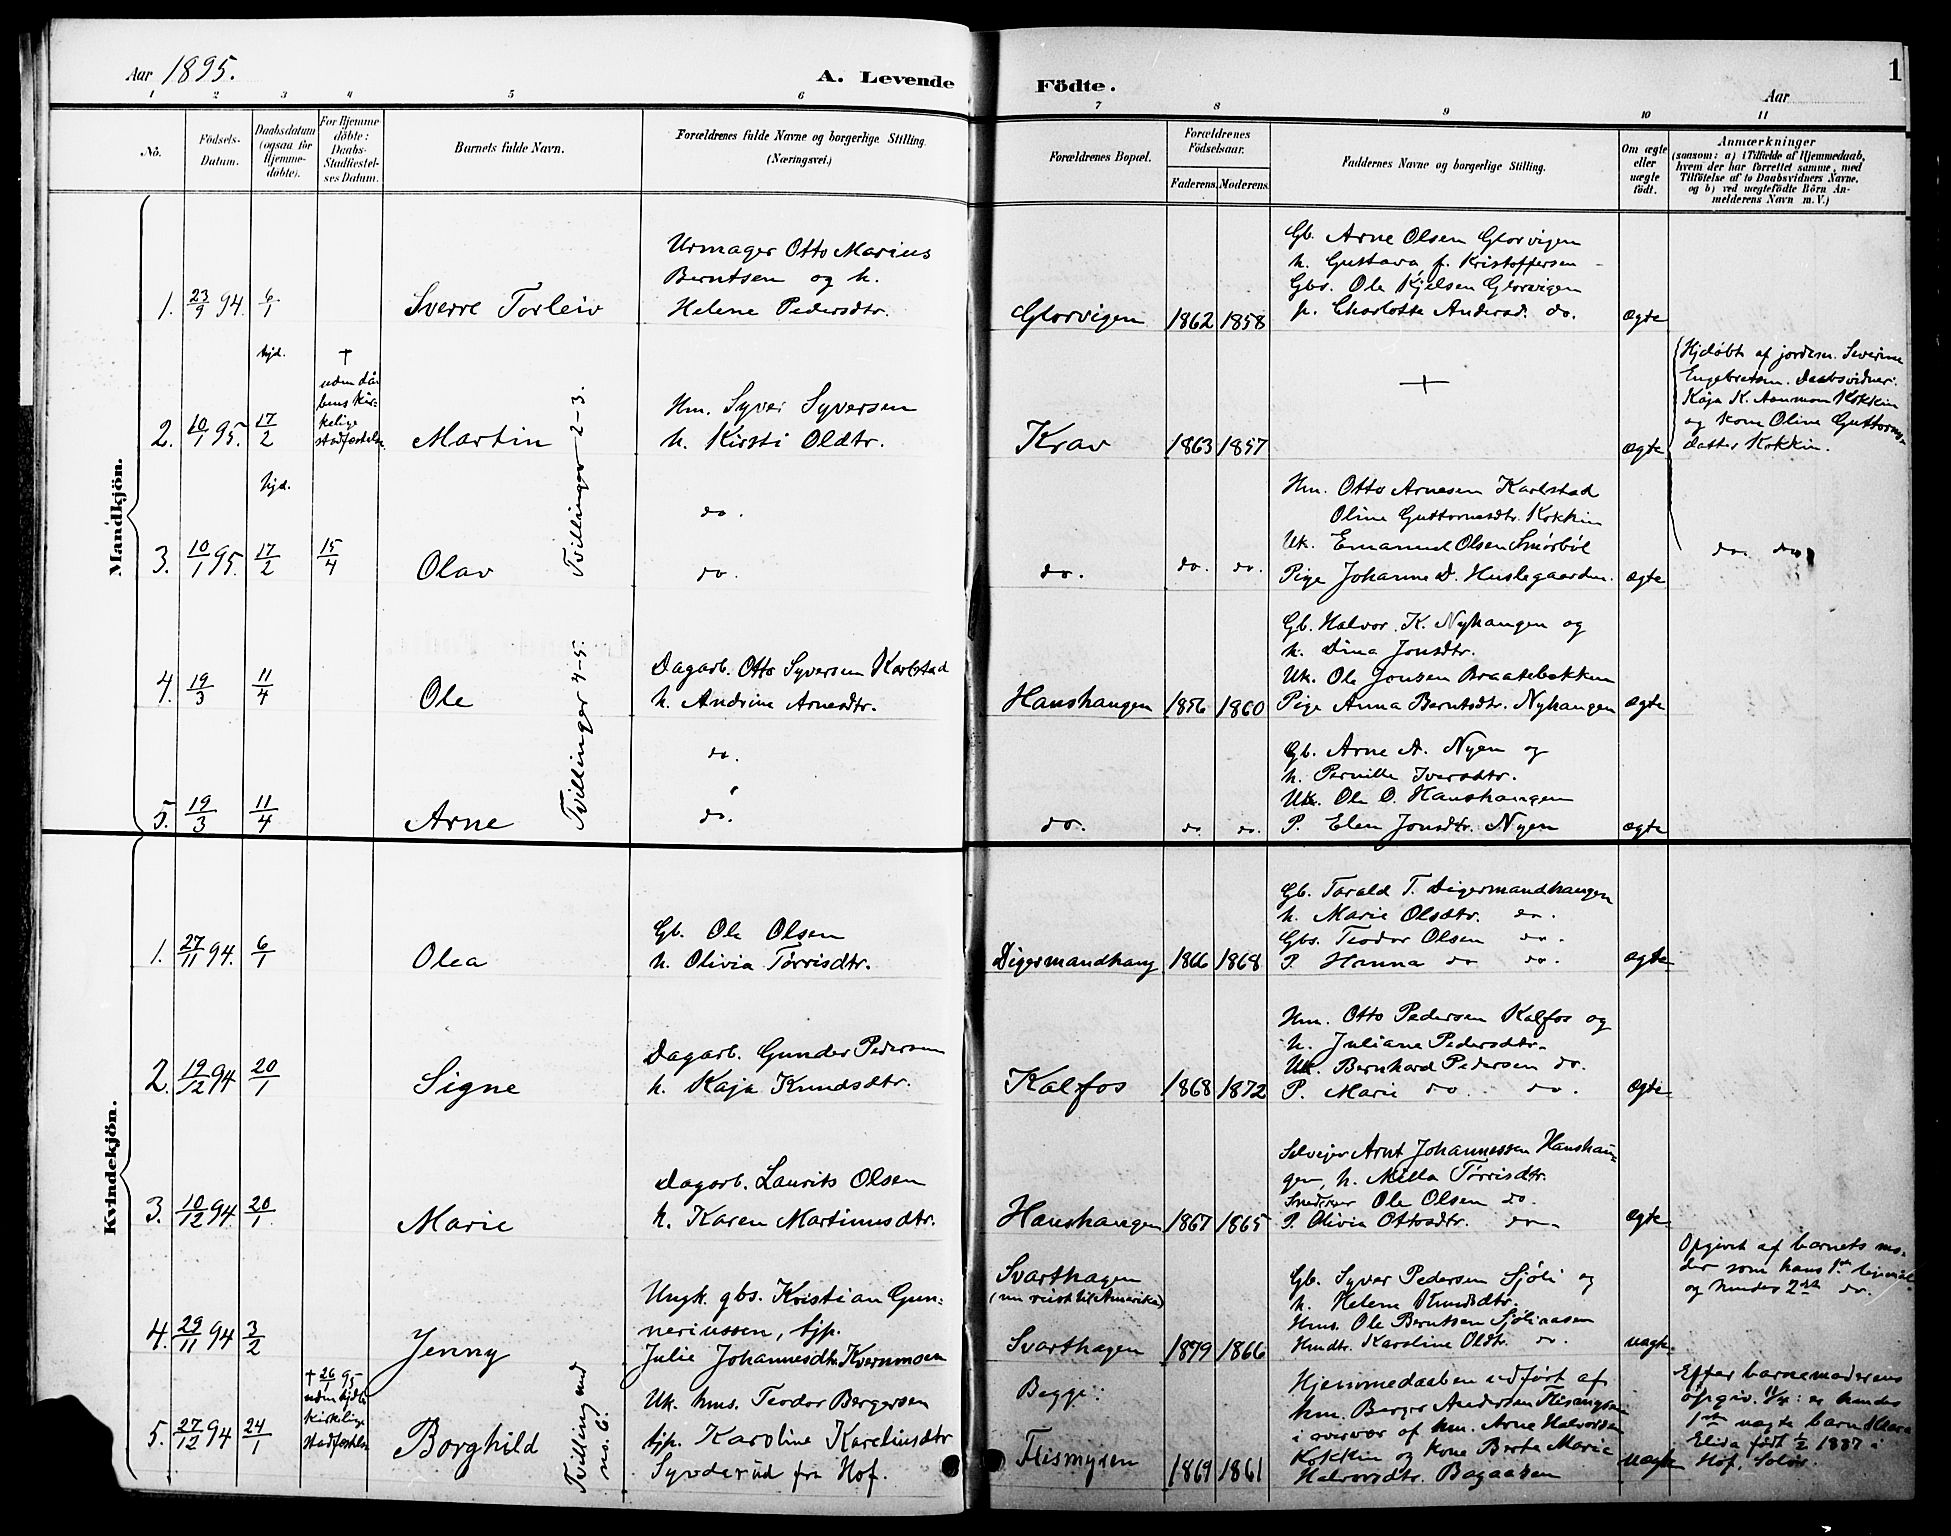 Aar 1895.
A. Levende
Födte.
1
Aar
1 2 3 4 5 6 7 8 9 10 11
No.
Födsels-
Datum.
Daabsdatum
(ogsaa for
Hjemme-
döbte).
For Hjemme
döbte:
Daabs-
Stadfæstel-
ses Datum.
Barnets fulde Navn.
Forældrenes fulde Navne og borgerlige Stilling.
(Næringsvei.)
Forældrenes Bopæl.
Forældrenes
Födselsaar.
Faderens. Moderens.
Faddernes Navne og borgerlige Stilling.
Om ægte
eller
uægte
födt.
Anmærkninger
(saasom: a) i Tilfælde af Hjemmedaab,
hvem der har forrettet samme, med
Tilföielse af to Daabsvidners Navne,
og b) ved uægtefödte Börn An-
melderens Navn m. V.)
Mandkjön.
1. 23/9 94. 6/1
Sverre Torleiv
Urmager Otto Marius
Berntsen og h.
Helene Pedersdtr.
Glorvigen
1862 1858
Gb. Arne Olsen Glorvigen
h. Gustava f. Kristoffersen
Gbs. Ole Kjelsen Glorvigen
p. Charlotte Andersd. do.
ægte
2. 10/1 95. hjd. 17/2
†
uden då-
bens kir-
kelige
stadfæstelse
Martin
Tvillinger 2-3.
Hm. Syver Syversen
h. Kirsti Oldtr.
Krav
1863 1857
+
ægte
Hjdöbt af jordem. Severine
Engebretsen. Daabsvidner:
Kaja K. Aamman Kokkin
og kone Oline Guttorms-
datter Kokkin.
3. 10/1 95. hjd. 17/2 15/4
Olav
do.
do.
do.
do. do.
Hm. Otto Arnesen Karlstad
Oline Guttormsdtr. Kokkin
Uk. Emanuel Olsen Smörböl
Pige Johanne D. Huslegaarden.
ægte
do. do.
4. 19/3 11/4
Ole
Tvillinger 4-5.
Dagarb. Otto Syversen Karlstad
h. Andrine Arnesdtr.
Hanshaugen
1856 1860
Gb. Halvor K. Nyhaugen og
h. Dina Jonsdtr.
Uk. Ole Jonsen Braatebakken
Pige Anna Berntsdtr. Nyhaugen
ægte
5. 19/3 11/4
Arne
do.
do.
do.
do. do.
Gb. Arne A. Nyen og
h. Pernille Iversdtr.
Uk. Ole O. Hanshaugen
P. Elen Jonsdtr. Nyen
ægte
Kvindekjön.
1. 27/11 94. 6/1
Olea
Gb. Ole Olsen
h. Olivia Tørrisdtr.
Digermandhaug
1866 1868
Gb. Torald T. Digermandhaugen
h. Marie Olsdtr. do.
Gbs. Teodor Olsen do.
P. Hanna do do.
ægte
2. 19/12 94 20/1
Signe
Dagarb. Gunder Pedersen
h. Kaja Knudsdtr.
Kalfos
1868 1872
Hm. Otto Pedersen Kalfos og
h. Juliane Pedersdtr.
Uk. Bernhard Pedersen do.
P. Marie do do.
ægte
3. 10/12 94 20/1.
Marie
Dagarb. Laurits Olsen
h. Karen Martinusdtr.
Hanshaugen
1867 1865
Selveier Arnt Johannessen Hanshau-
gen, h. Milla Tørrisdtr.
Snedker Ole Olsen do.
P. Olivia Ottosdtr. do.
ægte
4. 29/11 94 3/2
Jenny
Ungk. gbs. Kristian Gun-
neriussen, tjp.
Julie Johannesdtr. Kvernmoen
Svarthagen
(nu reist til Amerika)
Svarthagen
1879 1866
Gb. Syver Pedersen Sjöli og
h. Helene Knudsdtr.
Hms. Ole Berntsen Sjöliaasen
Hmdtr. Karoline Oldtr. do.
uægte
Opgivet af barnets mo-
der som hans 1ste leiermål
og hendes 2det do.
5. 27/12 94 24/1
† 26/1 95
uden hjdb.
kirkelige
stadfæstelse
Borghild
Tvilling med
no. 6.
Uk. hms. Teodor Bergersen
tjp. Karoline Kareliusdtr
Syverud fra Hof.
Begge:
Flismyren
1869 1861
Hjemmedaaben udført af
hm. Berger Andersen Flisangen
i overvær af hm. Arne Halvorsen
Kokkin og kone Berte Marie
Halvorsdtr. Bagaasen
uægte
Efter barnemoderens
opgiv. 11/4: er hendes
1ste uægte barn Klara
Elida født 1/2 1887 i
Hof, Solör.